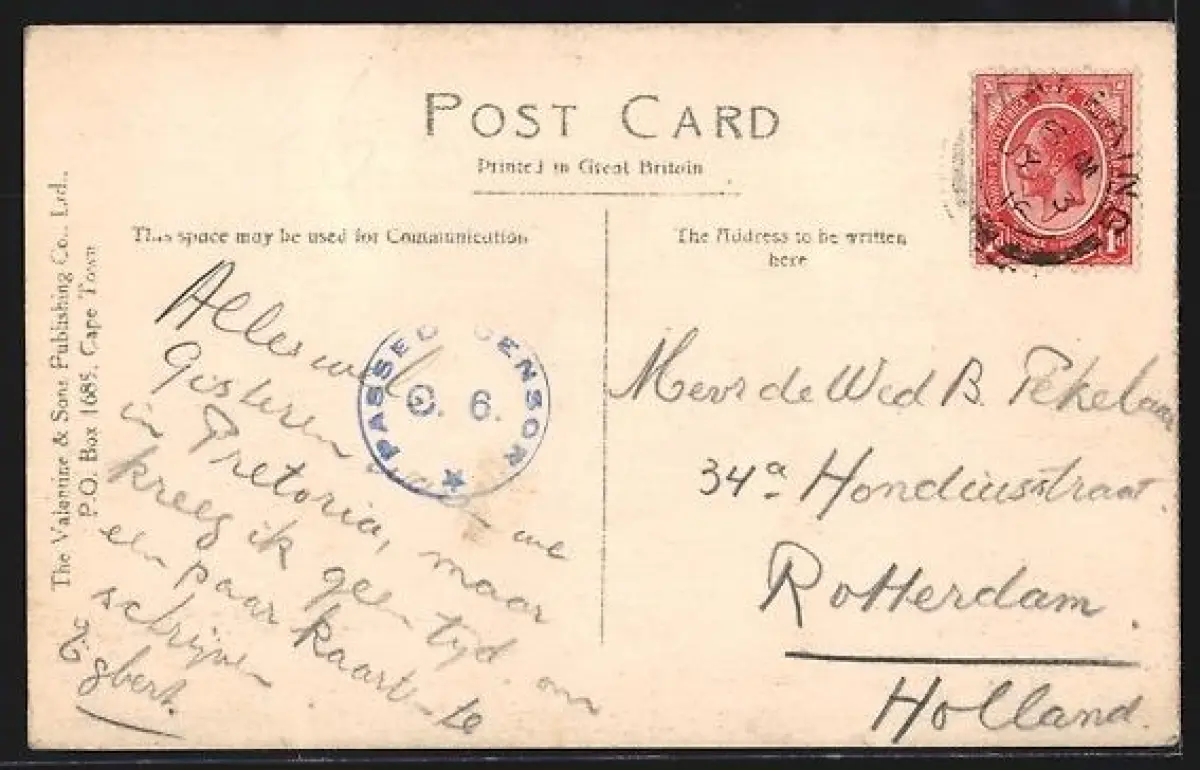 POST CARD
Printed in Great Britain
This space may be used for Communication
The Address to be written
here
The Valentine & Sons Publishing Co., Ltd.,
P.O. Box 1685, Cape Town
Alles wel
Gisteren
in Pretoria, maar
kreeg ik geen tyd om
een paar kaarten te
schrijven
Egbert.
PASSED CENSOR
6.
Mevr de Wed B. Tekelaar
34a Hondiusstraat
Rotterdam.
Holland.
1d